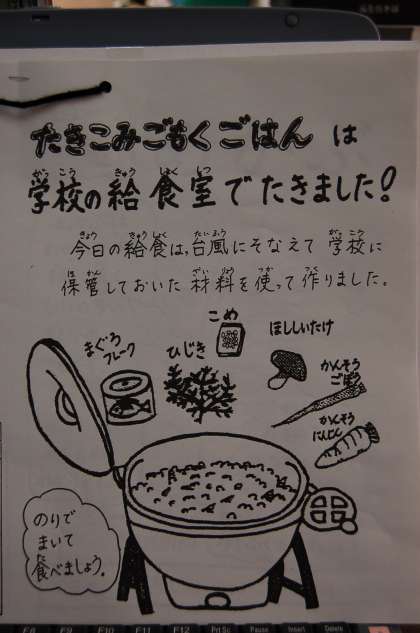 たきこみごもくごはん は
学校の給食室でたきました!
今日の給食は、台風にそなえて 学校に
保管しておいた 材料を使って作りました。
こめ
ほししいたけ
まぐろ
フレーク
ひじき
かんそう
ごぼう
かんそう
にんじん
のりで
まいて
食べましょう。
F8 F9 F10 F11 F12 Prt Sc Pause Insert Delete